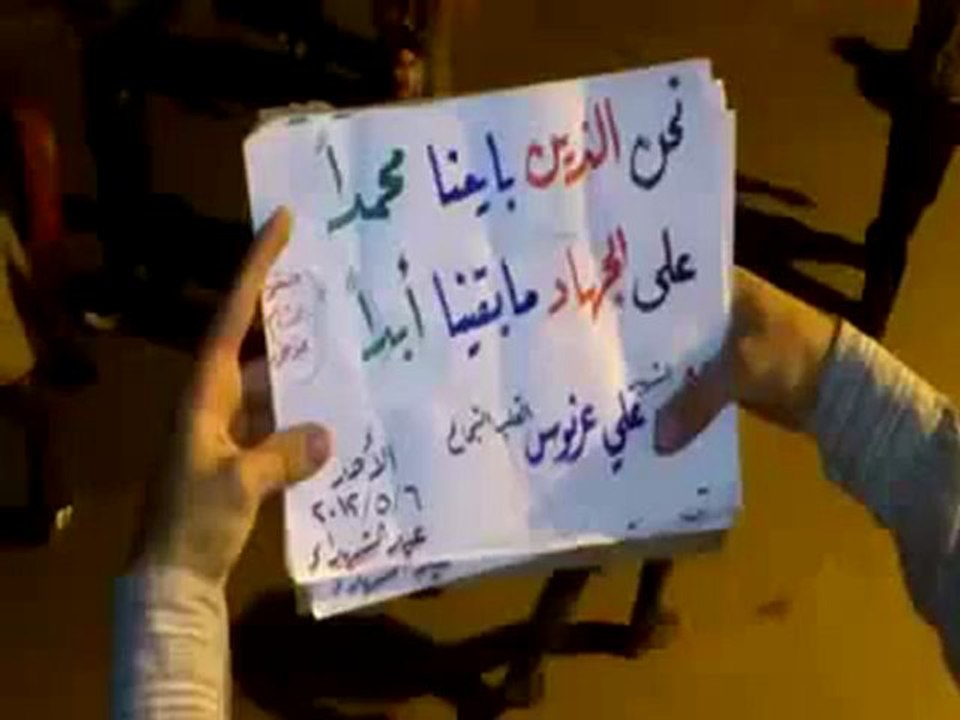 نحن الذين بايعنا محمداً
على الجهاد مابقينا أبداً
علي عزنوس القلب الشجاع
الأحد
٢٠١٢/٥/٦
عيد الشهداء